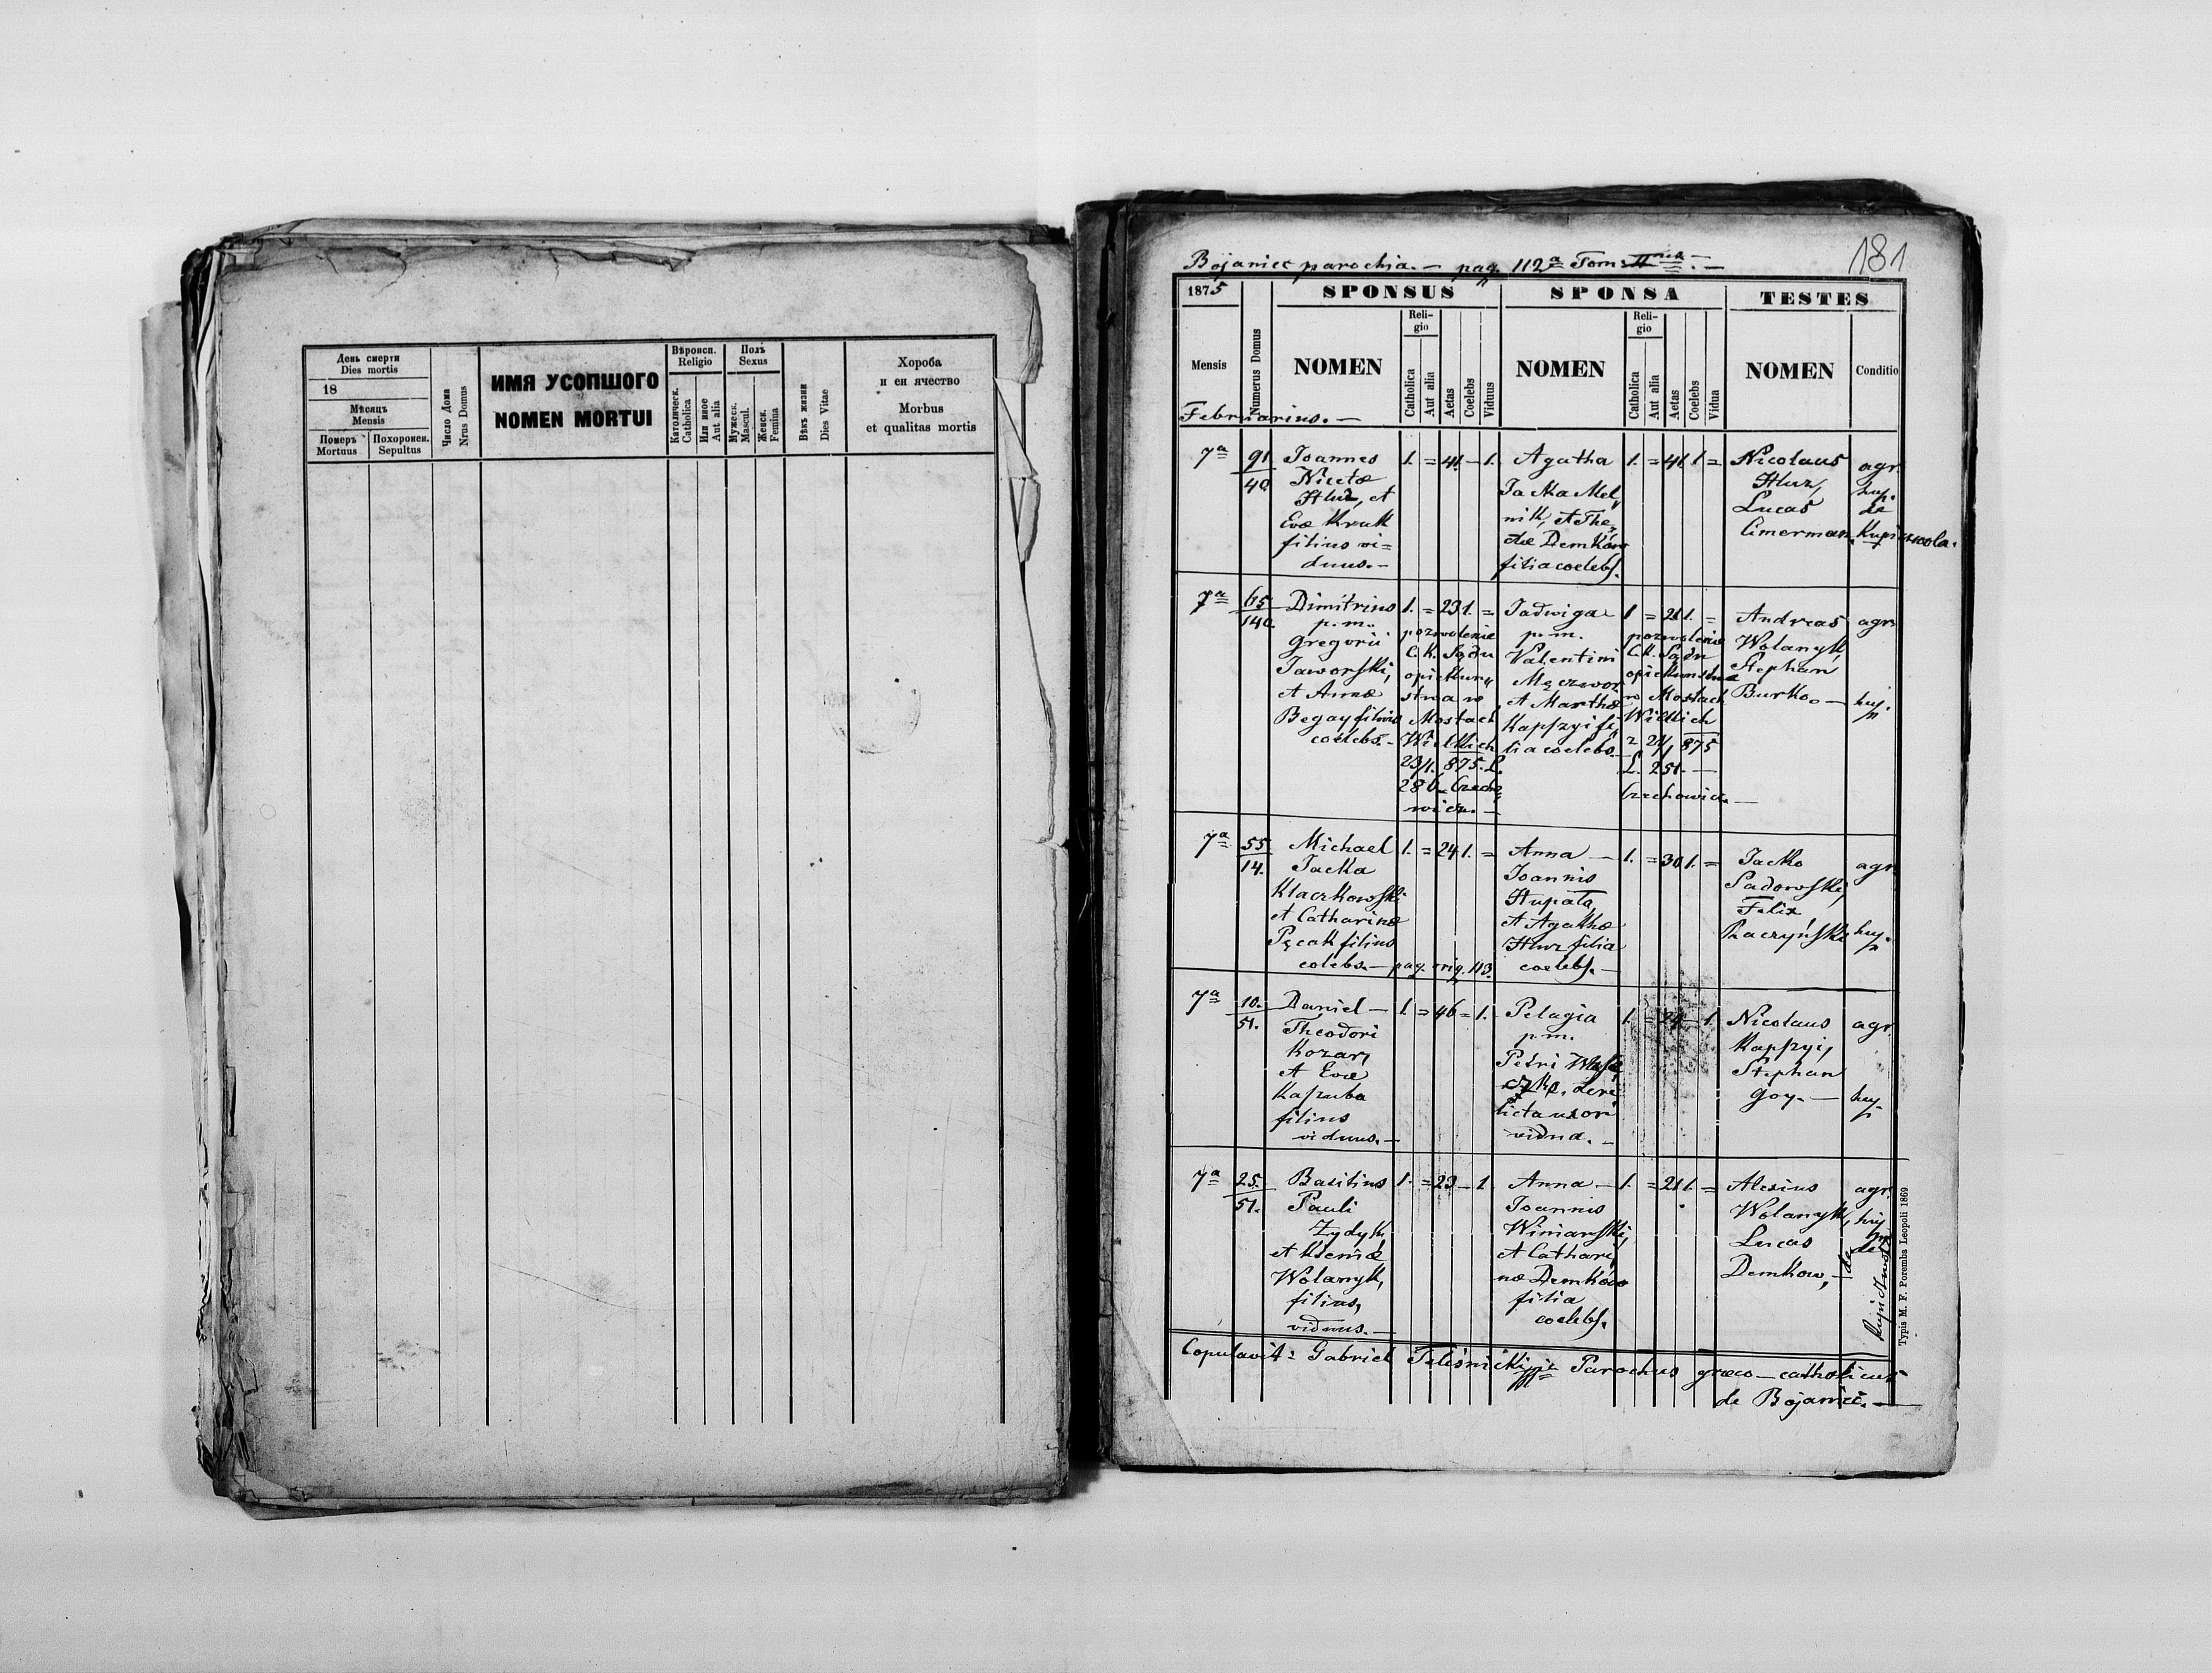 День смерти
Dies mortis
18
Мѣсяцъ
Mensis
Померъ
Mortuus
Похоронен.
Sepultus
Число Дома
Nrus Domus
ИМЯ УСОПШОГО
NOMEN MORTUI
Вѣроисп.
Religio
Католическ.
Catholica
Или иное
Aut alia
Полъ
Sexus
Мужеск.
Mascul.
Женск.
Femina
Вѣкъ жизни
Dies Vitae
Хороба
и еи ячество
Morbus
et qualitas mortis
181
Bojaniec parochia. — pag. 112a Tom: II
1875
SPONSUS
SPONSA
TESTES
Mensis
Numerus Domus
NOMEN
Reli-
gio
Catholica
Aut alia
Aetas
Coelebs
Viduus
NOMEN
Reli-
gio
Catholica
Aut alia
Aetas
Coelebs
Vidua
NOMEN
Conditio
Februarius. —
7a 91/40 Joannes 1. = 41 — 1. Agatha 1. = 41 1 = Nicolaus agr.
Nicetæ Jacka Mel, Hluz, hup.
Hluz, et nik, et The, Lucas de
Evæ Kruk clæ Demków Cimerman.
filius vi= filia coelebs.
duus. —
7a 65/140. Dimitrius 1. = 23 1. = Jadwiga 1 = 21 1. = Andreas agr.
p. m. pozwolenie p. m. pozwolenie Wolanyk,
Gregorii C. K. Sądu Valentini C. K. Sądu Stephan
Jaworski, opiekuń, opiekuństwa Burko. — huj.
et Annæ stwa w et Marthæ w Mostach
Begay filius Mostach Kapszyi fi, Wielkich
coelebs. — Wielkich lia coelebs. 875
23/1. 875. L. L. 251. —
286. Czecho Czechowicz. —
wicz. —
7a 55/14. Michael 1. = 24 1. = Anna — 1. = 30 1. = Jacko agr.
Jacka Joannis Sadowski,
Klaczkowski Hupała, Felix
et Catharinæ et Agathæ Raczyński huj.
Pęcak filius Hluz filia
colebs. — pag. orig. 113. coelebs. —
7a 10./51. Daniel — 1. = 46 = 1. Pelagia 1. = 24 — 1. Nicolaus agr.
Theodori p. m. Kapszyi,
Kozar, Petri Stephan
et Evæ Goy. — huj.
Kaszuba licta uxor
filius vidua. —
viduus. —
7a 25./51. Basilius 1. = 23 — 1 Anna — 1. = 21 1. = Alexius agr.
Pauli Joannis Wolanyk, huj
Zydyk, Winiarski, Lucas
et Kseniæ et Cathari, Demkow, — de
Wolanyk, næ Demków
filius, filia
viduus. — coelebs.
Copulavit: Gabriel Teleśnicki Parochus græco-catholicus
de Bojaniec. —
Typis M. F. Poremba Leopoli 1869